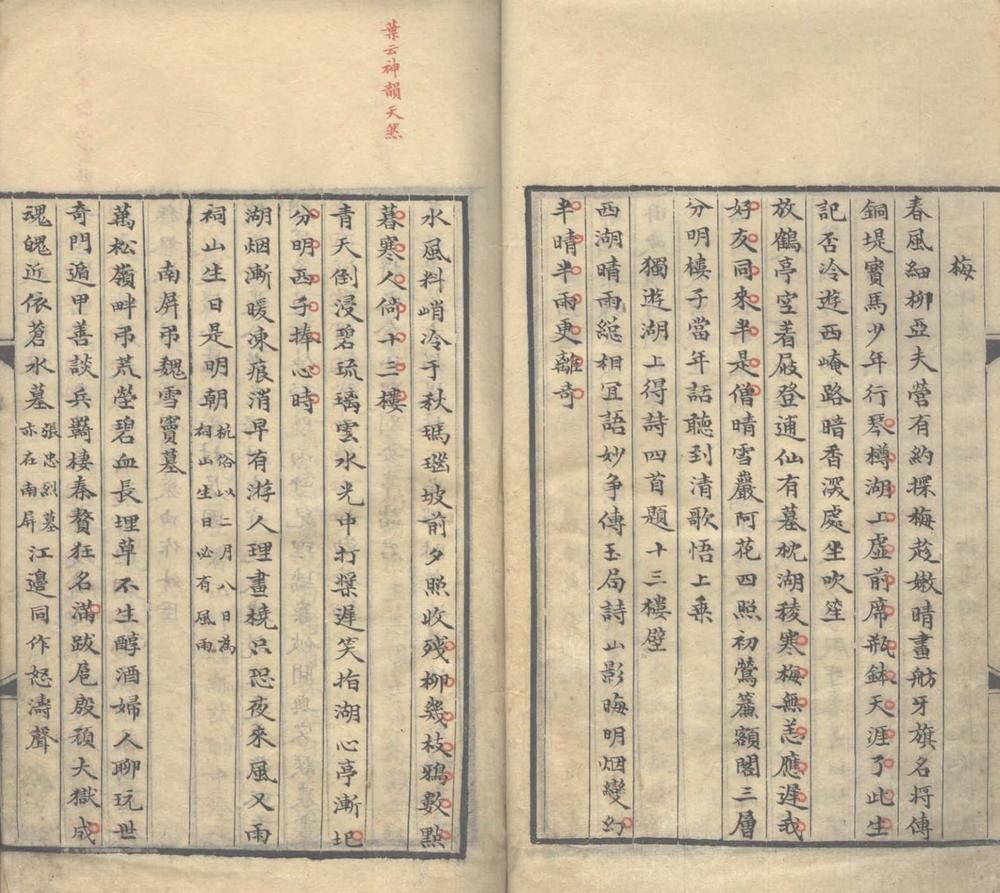 梅
春風細柳亞夫營有約探梅趁嫩晴畫舫牙旗名將傳
銅堤寶馬少年行琴樽湖上虛前席瓶鉢天涯了此生
記否冷遊西崦路暗香深處坐吹笙
放鶴亭空着屐登逋仙有墓枕湖稜寒梅無恙應遲我
好友同來半是僧晴雪巖阿花四照初鶯簾額閣三層
分明樓子當年話聽到清歌悟上乘
獨遊湖上得詩四首題十三樓壁
西湖晴雨總相宜語妙爭傳玉局詩山影晦明烟變幻
半晴半雨更離奇
葉云神韻天然
水風料峭冷于秋瑪瑙坡前夕照收殘柳幾枝鴉數點
暮寒人倚十三樓
青天倒浸碧琉璃雲水光中打槳遲笑指湖心亭漸圯
分明西子捧心時
湖烟漸暖凍痕消早有游人理畫橈只恐夜來風又雨
祠山生日是明朝杭俗以二月八日為祠山生日必有風雨
南屏弔魏雪竇墓
萬松嶺畔弔荒塋碧血長埋草不生醇酒婦人聊玩世
奇門遁甲善談兵羇棲秦贅狂名滿跋扈殷頑大獄成
魂魄近依蒼水墓張忠烈墓亦在南屏江邊同作怒濤聲